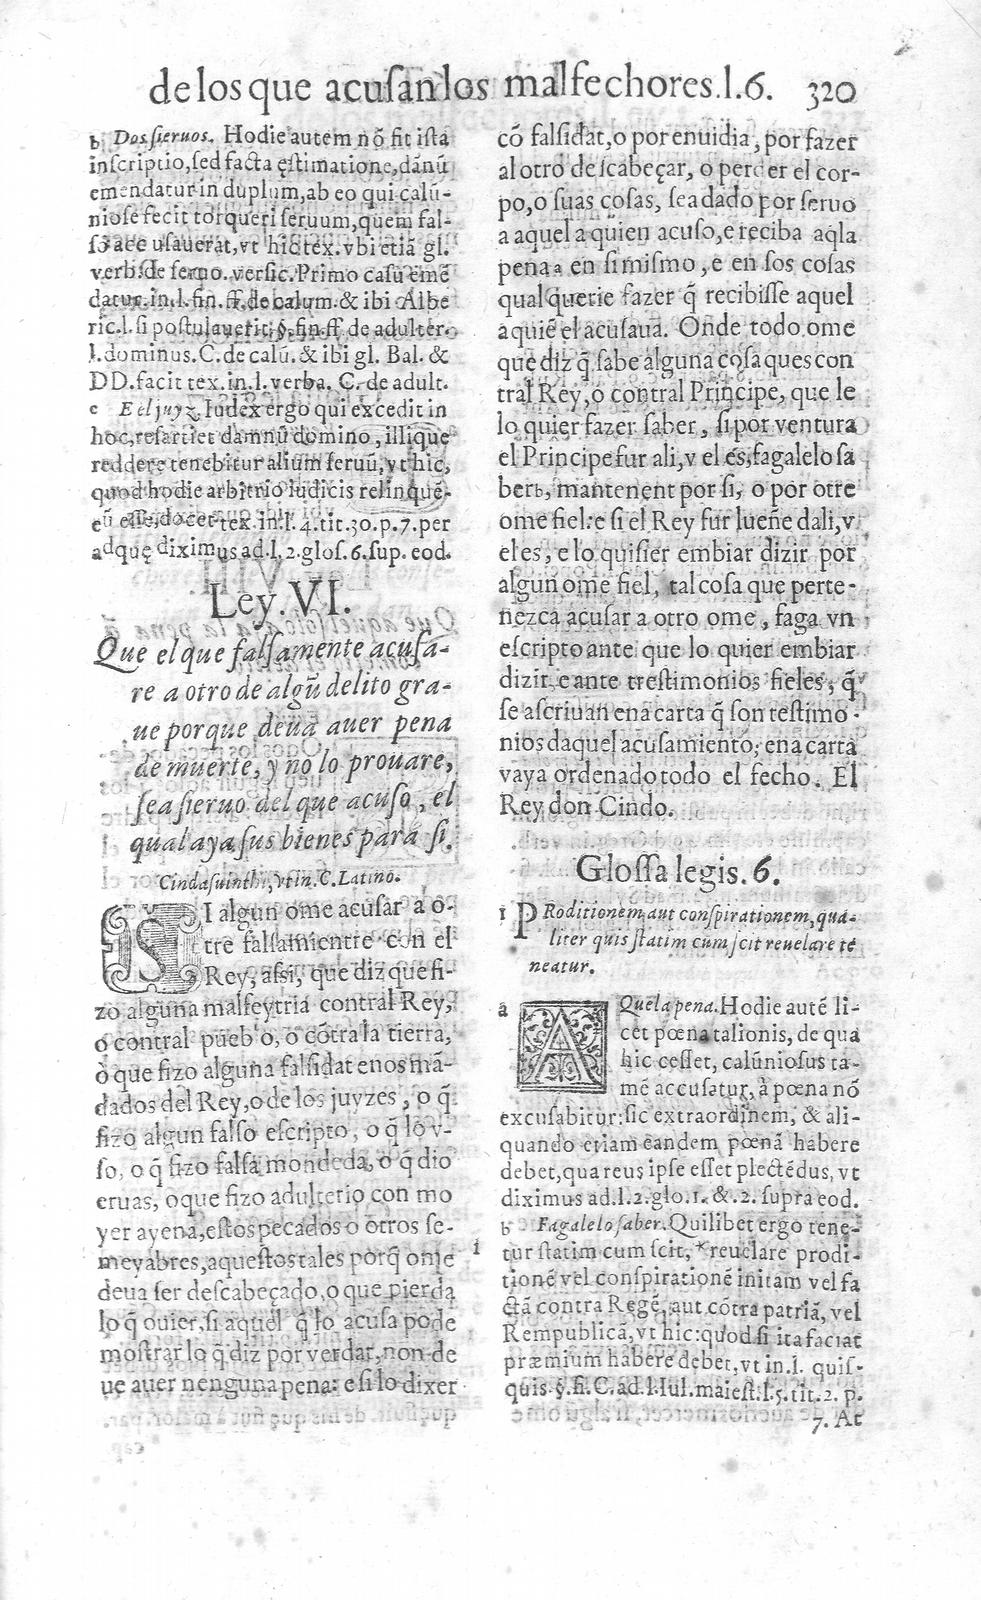 de los que acusan los malfechores.l.6. 320
b Dos sieruos. Hodie autem nõ fit ista
inscriptio, sed facta ęstimatione, dãnũ
emendatur in duplum, ab eo qui calũ-
niose fecit torqueri seruum, quem fal-
verbi de seruo. versic. Primo casu emẽ
datur. in. l. fin. ff. de calum. & ibi Albe
ric. l. si postulauerit. §. fin. ff. de adulter.
l. dominus. C. de calũ. & ibi gl. Bal. &
DD. facit tex. in. l. verba. C. de adult.
c E el juyz. Iudex ergo qui excedit in
hoc, resartiet damnũ domino, illique
reddere tenebitur alium seruũ, vt hic,
quod hodie arbitrio Iudicis relinquẽ-
eũ esse, docet tex. in. l. 4. tit. 30. p. 7. per
adquę diximus ad. l. 2. glos. 6. sup. eod.
Ley. VI.
Que el que falsamente acusa-
re a otro de algũ delito gra-
ue porque deua auer pena
de muerte, y no lo prouare,
sea sieruo del que acuso, el
qual aya sus bienes para si.
Cindasuinthi, vt in. C. Latino.
SI algun ome acusar a o-
tre falsamientre con el
Rey, assi, que diz que fi-
zo alguna malfeytria contral Rey,
o contral pueblo, o cõtra la tierra,
o que fizo alguna falsidat enos mã-
dados del Rey, o de los juyzes, o q̃
fizo algun falso escripto, o q̃ lo v-
so, o q̃ fizo falsa mondeda, o q̃ dio
eruas, o que fizo adulterio con mo
yer ayena, estos pecados o otros se-
meyabres, aquestos tales porq̃ ome 1
deua ser descabeçado, o que pierda
lo q̃ ouier, si aquel q̃ lo acusa pode
mostrar lo q̃ diz por verdat, non de
ue auer nenguna pena: e si lo dixer
cõ falsidat, o por enuidia, por fazer
al otro descabeçar, o perder el cor-
po, o suas cosas, sea dado por seruo
a aquel a quien acuso, e reciba aq̃la
pena a en si mismo, e en sos cosas
qual querie fazer q̃ recibisse aquel
a quiẽ el acusaua. Onde todo ome
que diz q̃ sabe alguna cosa ques con
tral Rey, o contral Principe, que le
lo quier fazer saber, si por ventura
el Principe fur ali, v el es, fagalelo sa
ber b, mantenent por si, o por otre
ome fiel: e si el Rey fur lueñe dali, v
el es, e lo quisier embiar dizir por
algun ome fiel, tal cosa que perte-
nezca acusar a otro ome, faga vn
escripto ante que lo quier embiar
dizir, e ante trestimonios fieles, q̃
se ascriuan ena carta q̃ son testimo-
nios daquel acusamiento, ena carta
vaya ordenado todo el fecho. El
Rey don Cindo.
Glossa legis. 6.
1 PRoditionem, aut conspirationem, qua-
liter quis statim cum scit reuelare te
neatur.
a AQuela pena. Hodie autẽ li-
cet pœna talionis, de qua
hic cesset, calũniosus ta-
mẽ accusatur, à pœna nõ
excusabitur: sic extraordinem, & ali-
quando etiam eandem pœnã habere
debet, qua reus ipse esset plectẽdus, vt
diximus ad. l. 2. glo. 1. &. 2. supra eod.
b Fagalelo saber. Quilibet ergo tene-
tur statim cum scit, * reuelare prodi-
tionẽ vel conspirationẽ initam vel fa
ctã contra Regẽ, aut cõtra patriã, vel
Rempublicã, vt hic: quod si ita faciat
præmium habere debet, vt in. l. quis-
quis. §. fi. C. ad. l. Iul. maiest. l. 5. tit. 2. p.
7. At